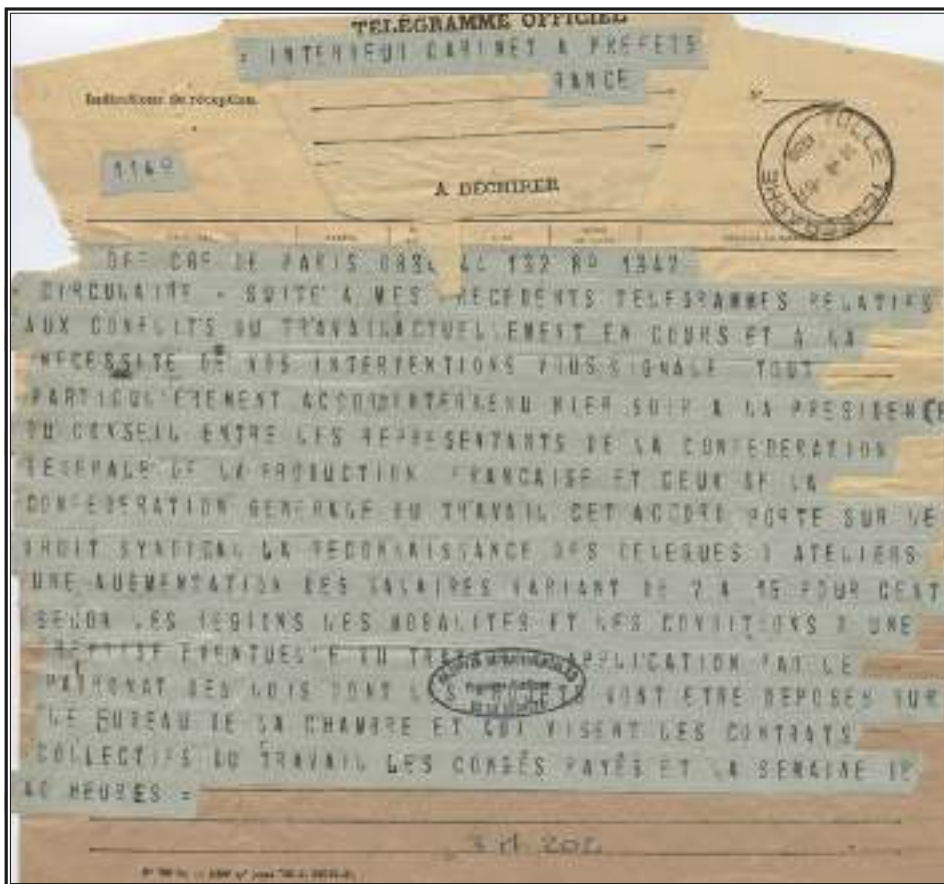 TÉLÉGRAMME OFFICIEL
= INTERIEUR CABINET A PREFETS
RANCE
Indications de réception.
N°
1140
TULLE TELEGRAPHE
A DÉCHIRER
OFF CRE DE PARIS 132 1342
CIRCULAIRE - SUITE A MES PRECEDENTS TELEGRAMMES RELATIFS
AUX CONFLITS DU TRAVAILACTUELLEMENT EN COURS ET A LA
NECESSITE DE VOS INTERVENTIONS VOUSSIGNALE TOUT
PARTICULIEREMENT ACCORDINTERVENU HIER SOIR A LA PRESIDENCE
DU CONSEIL ENTRE LES REPRESENTANTS DE LA CONFEDERATION
GENERALE DE LA PRODUCTION FRANCAISE ET CEUX DE LA
CONFEDERATION GENERALE DU TRAVAIL CET ACCORD PORTE SUR LE
DROIT SYNDICAL LA RECONNAISSANCE DES DELEGUES D ATELIERS
UNE AUGMENTATION DES SALAIRES VARIANT DE 7 A 15 POUR CENT
SELON LES REGIONS LES MODALITES ET LES CONDITIONS D UNE
REPRISE EVENTUELLE DU APPLICATION PAR LE
PATRONAT DES LOIS DONT LES PROJETS VONT ETRE DEPOSES SUR
LE BUREAU DE LA CHAMBRE ET QUI VISENT LES CONTRATS
COLLECTIFS DU TRAVAIL LES CONGÉS PAYÉS ET LA SEMAINE DE
40 HEURES =